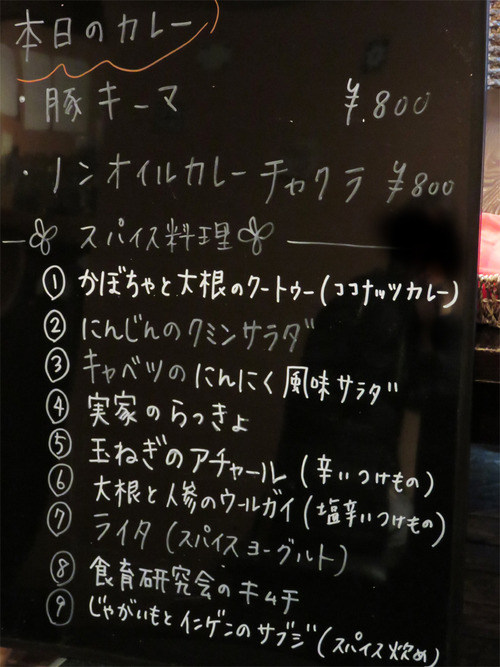 本日のカレー
・豚キーマ ¥.800
・ノンオイルカレーチャクラ ¥800
スパイス料理
① かぼちゃと大根のクートゥー(ココナッツカレー)
② にんじんのクミンサラダ
③ キャベツのにんにく風味サラダ
④ 実家のらっきょ
⑤ 玉ねぎのアチャール(辛いつけもの)
⑥ 大根と人参のウールガイ(塩辛いつけもの)
⑦ ライタ(スパイスヨーグルト)
⑧ 食育研究会のキムチ
⑨ じゃがいもとインゲンのサブジ(スパイス炒め)